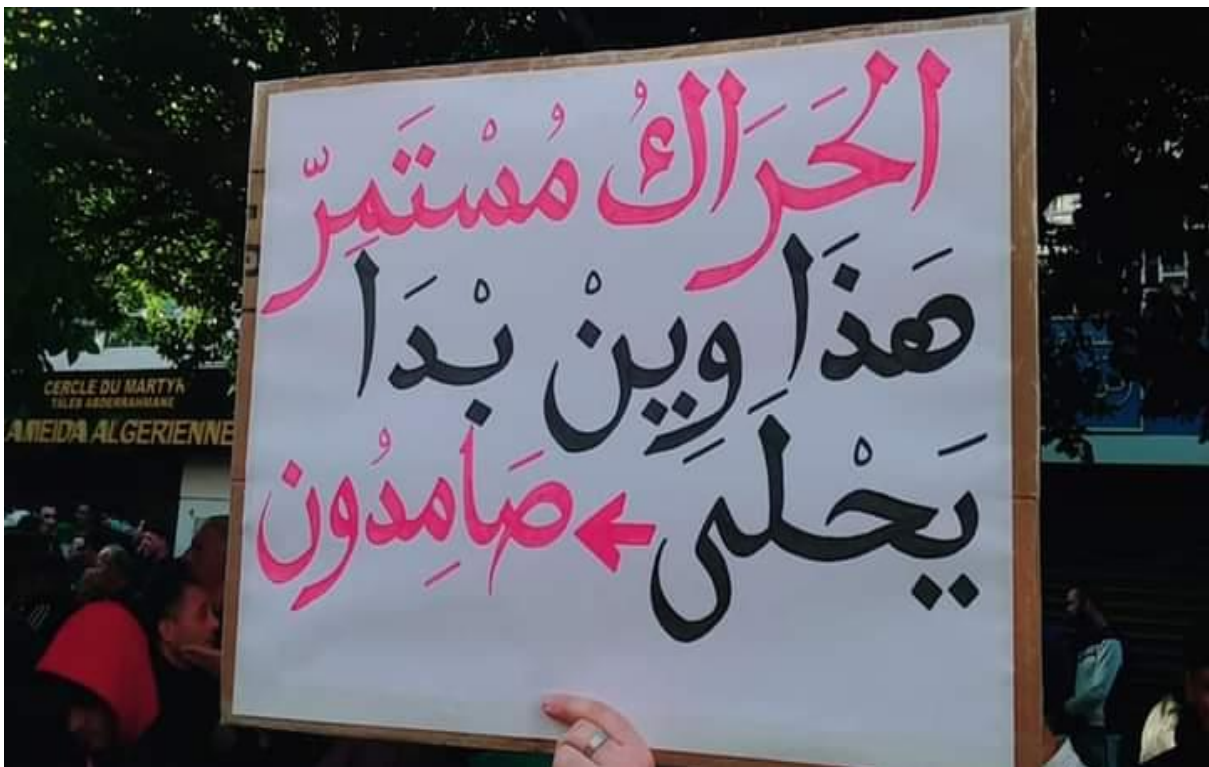 الحَرَاكُ مُسْتَمِرّ
هَذَا وِينْ بْدَا
يَحْلَى ← صَامِدُون
CERCLE DU MARTYR
TALEB ABDERRAHMANE
AMEIDA ALGERIENNE